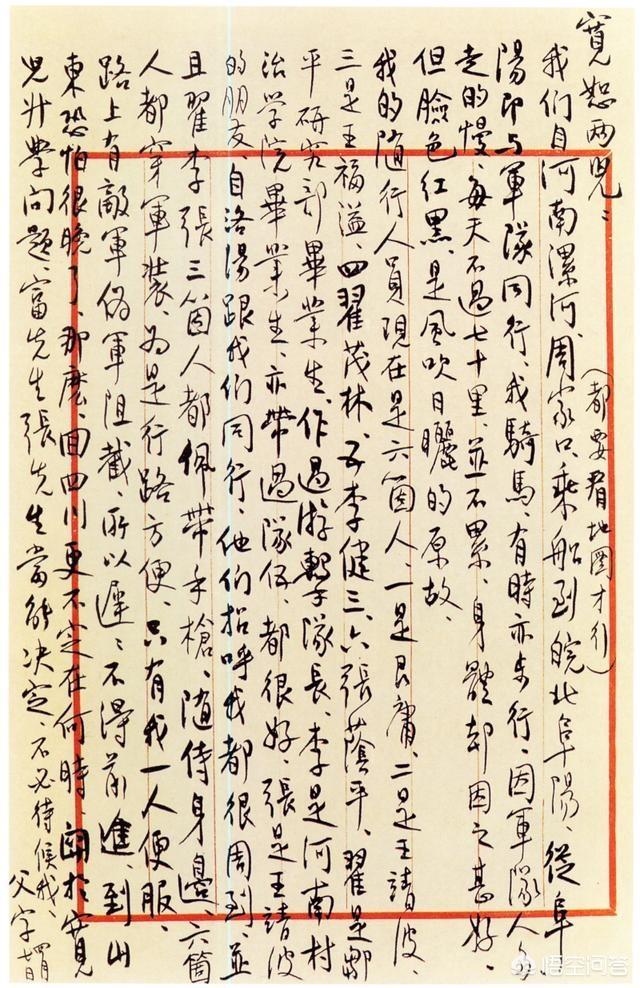 寬恕兩兒：
我们自河南漯河、周家口、乘船到皖北阜陽、從阜
（都要看地圖才行）
陽即与軍隊同行、我騎馬、有時亦步行、因軍隊人多
走的慢、每天不過七十里、並不累、身體却因之甚好、
但臉色红黑、是風吹日曬的原故、
我的随行人員現在是六箇人、一是艮庸、二是王靖波、
三是王福溢、四翟茂林、五李健三、六張蔭平、翟是鄒
平研究部畢業生、作過游擊隊長、李是河南村
治学院畢業生、亦带過隊伍、都很好、張是王靖波
的朋友、自洛陽跟我们同行、他们招呼我都很周到、並
且翟李張三箇人都佩带手槍、随侍身邊、六箇
人都穿軍裝、为是行路方便、只有我一人便服、
路上有敵軍伪軍阻截、所以遲遲不得前進、到山
東恐怕很晚了、那麽、回四川更不定在何時、関於寬
兒升學问題、富先生張先生當能决定、不必待候我、
父字
悟空问答